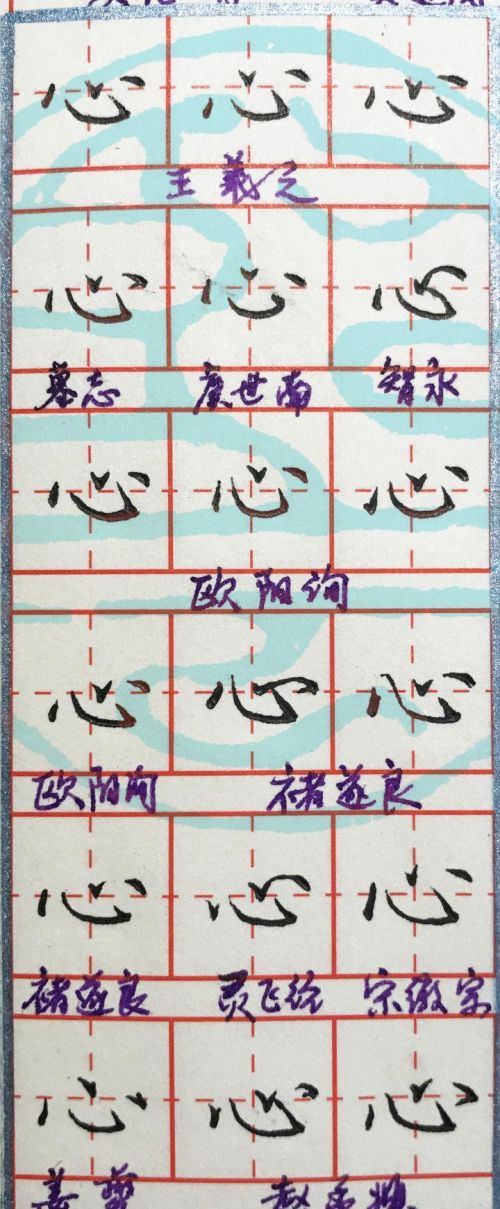 心 心 心
王羲之
心 心 心
墓志 虞世南 智永
心 心 心
欧阳询
心 心 心
欧阳询 褚遂良
心 心 心
褚遂良 灵飞经 宋徽宗
心 心 心
姜夔 赵孟頫